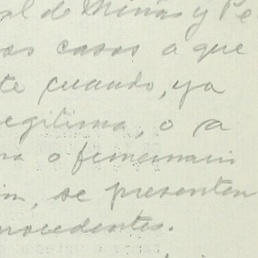 al de Minas y Pe
os casos a que
te cuando, ya
egitima, o a
o
in, se presenten
rocedentes.